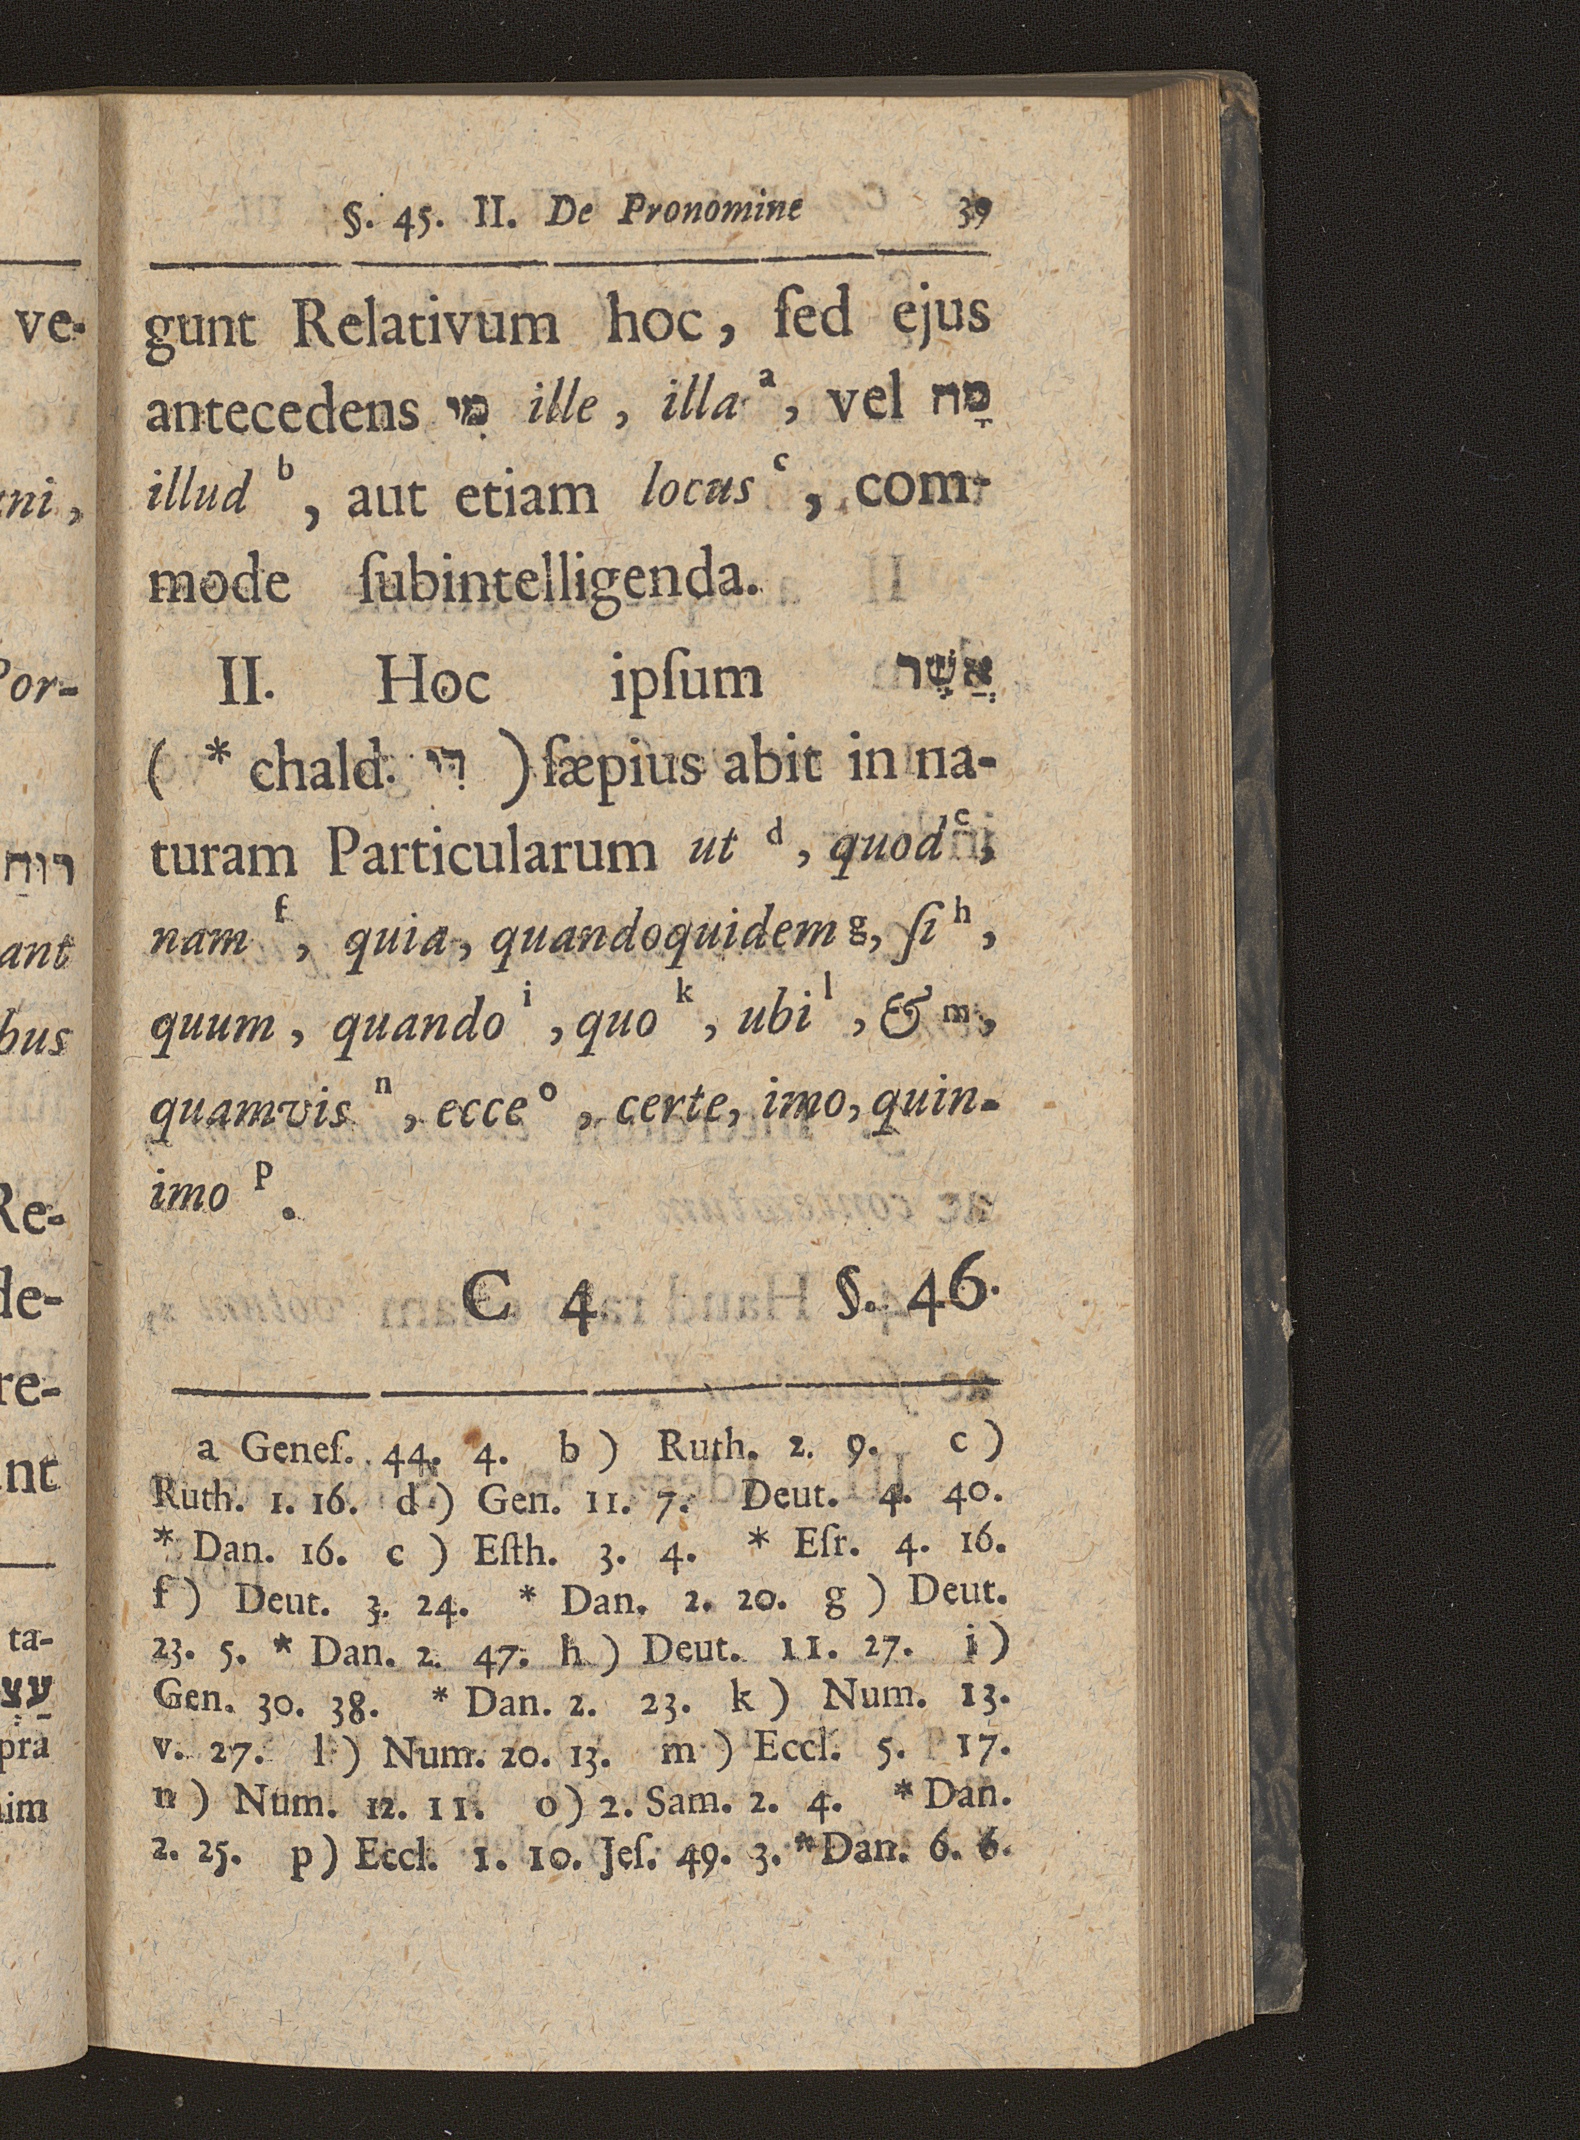 §. 45. II. De Pronomine 39
gunt Relativum hoc, ſed ejus
antecedens מִי ille, illa a, vel מָה
illud b, aut etiam locus c, com-
mode ſubintelligenda.
II. Hoc ipſum אֲשֶׁר
( * chald. דִּי ) ſæpius abit in na-
turam Particularum ut d, quod e,
nam f, quia, quandoquidem g, ſi h,
quum, quando i, quo k, ubi l, & m,
quamvis n, ecce o, certe, imo, quin-
imo p.
C 4 §. 46.
a Geneſ. 44. 4. b ) Ruth. 2. 9. c )
Ruth. 1. 16. d ) Gen. 11. 7. Deut. 4. 40.
* Dan. 16. c ) Eſth. 3. 4. * Eſr. 4. 16.
f ) Deut. 3. 24. * Dan. 2. 20. g ) Deut.
23. 5. * Dan. 2. 47. h ) Deut. 11. 27. i )
Gen. 30. 38. * Dan. 2. 23. k ) Num. 13.
v. 27. l ) Num. 20. 13. m ) Eccl. 5. 17.
n ) Num. 12. 11. o ) 2. Sam. 2. 4. * Dan.
2. 25. p ) Eccl. 1. 10. Jeſ. 49. 3. * Dan. 6. 6.
ve-
ni,
Por-
רוּחַ
ant
bus
Re-
de-
re-
nt
ta-
pra
im